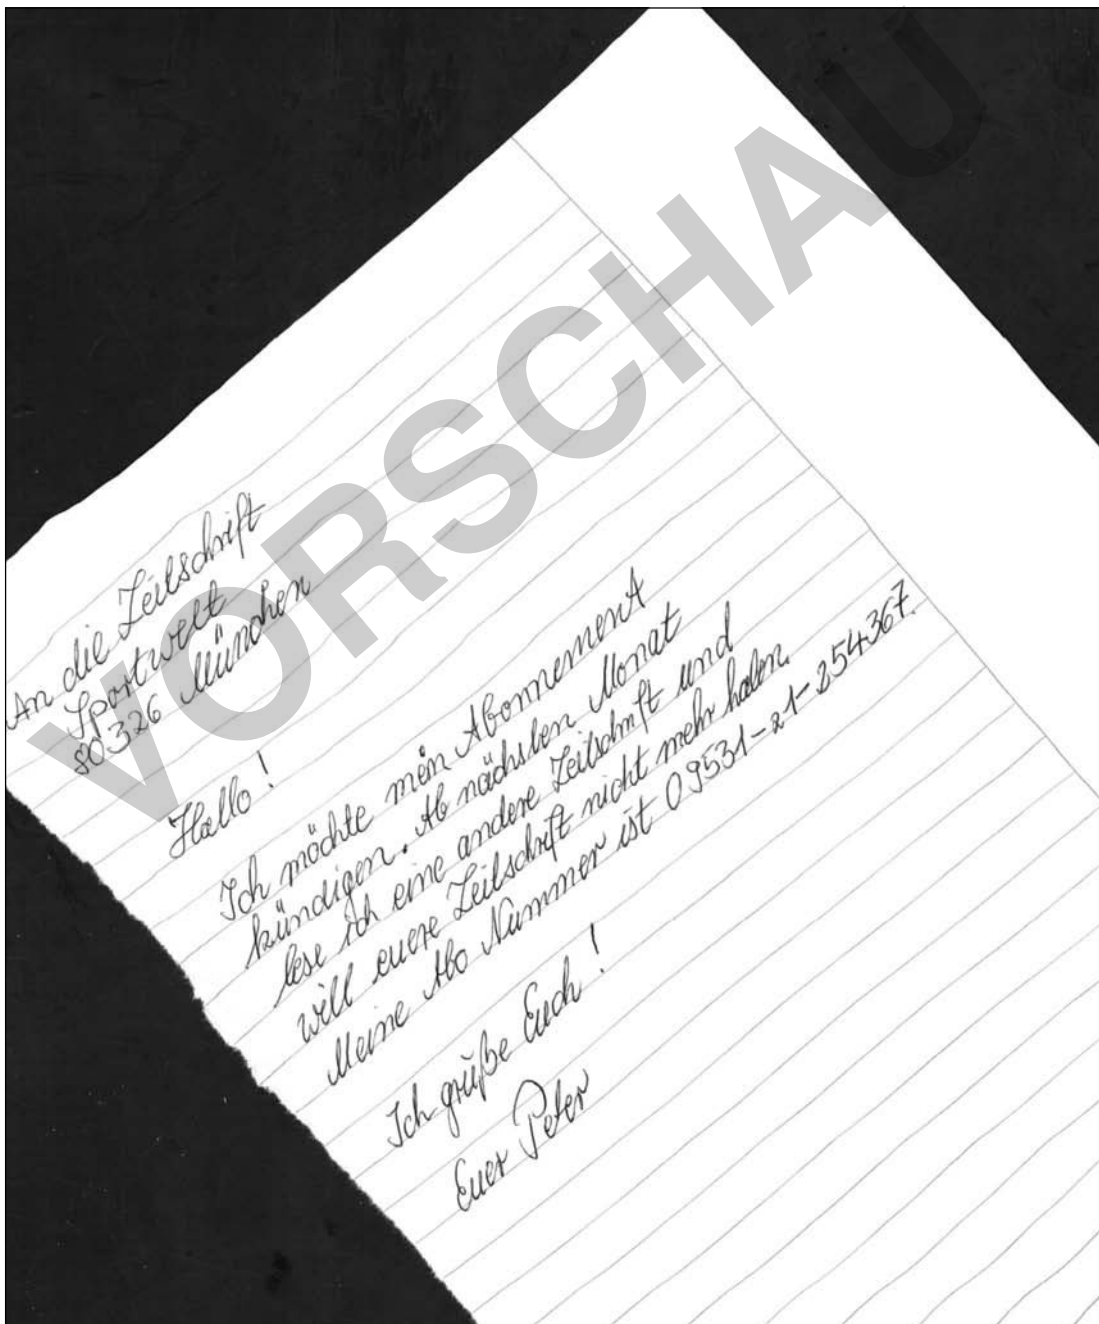 An die Zeitschrift
Sportwelt
80326 München
Hallo!
Ich möchte mein Abonnement
kündigen. Ab nächsten Monat
lese ich eine andere Zeitschrift und
will euere Zeitschrift nicht mehr haben.
Meine Abo Nummer ist 09531-21-254367.
Ich grüße Euch!
Euer Peter
VORSCHAU